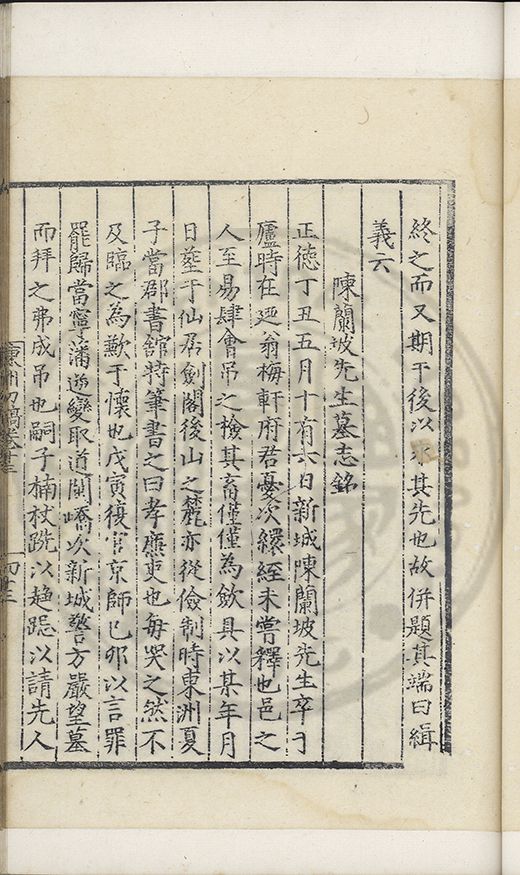 終之而又期于後以求其先也故併題其端曰緝
義云
陳蘭坡先生墓志銘
正德丁丑五月十有六日新城陳蘭坡先生卒于
廬時在廼翁梅軒府君憂次縗絰未嘗釋也邑之
人至易肆會吊之檢其畜僅僅為斂具以某年月
日塟于仙居劍閣後山之麓亦從儉制時東洲夏
子當郡書舘特筆書之曰孝廉吏也每哭之然不
及臨之為歉于懷也戊寅復官京師己卯以言罪
罷歸當寧藩逆變取道関嶠次新城警方嚴望墓
而拜之弗成吊也嗣子楠杖跣以趨跽以請先人
東洲初稿卷十三